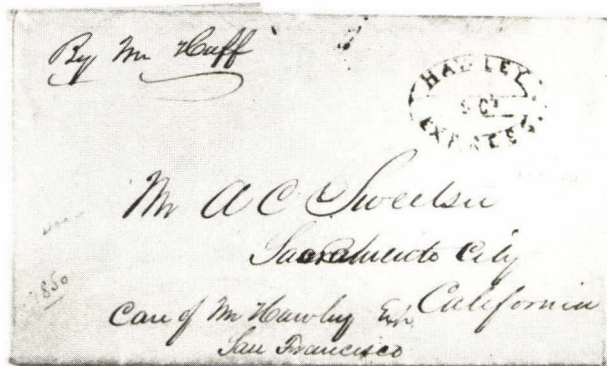 By Mr Huff
HAWLEY
& Co's
EXPRESS
Mr A C Sweetser
Sacramento City
California
Care of Mr Hawley
San Francisco
1850